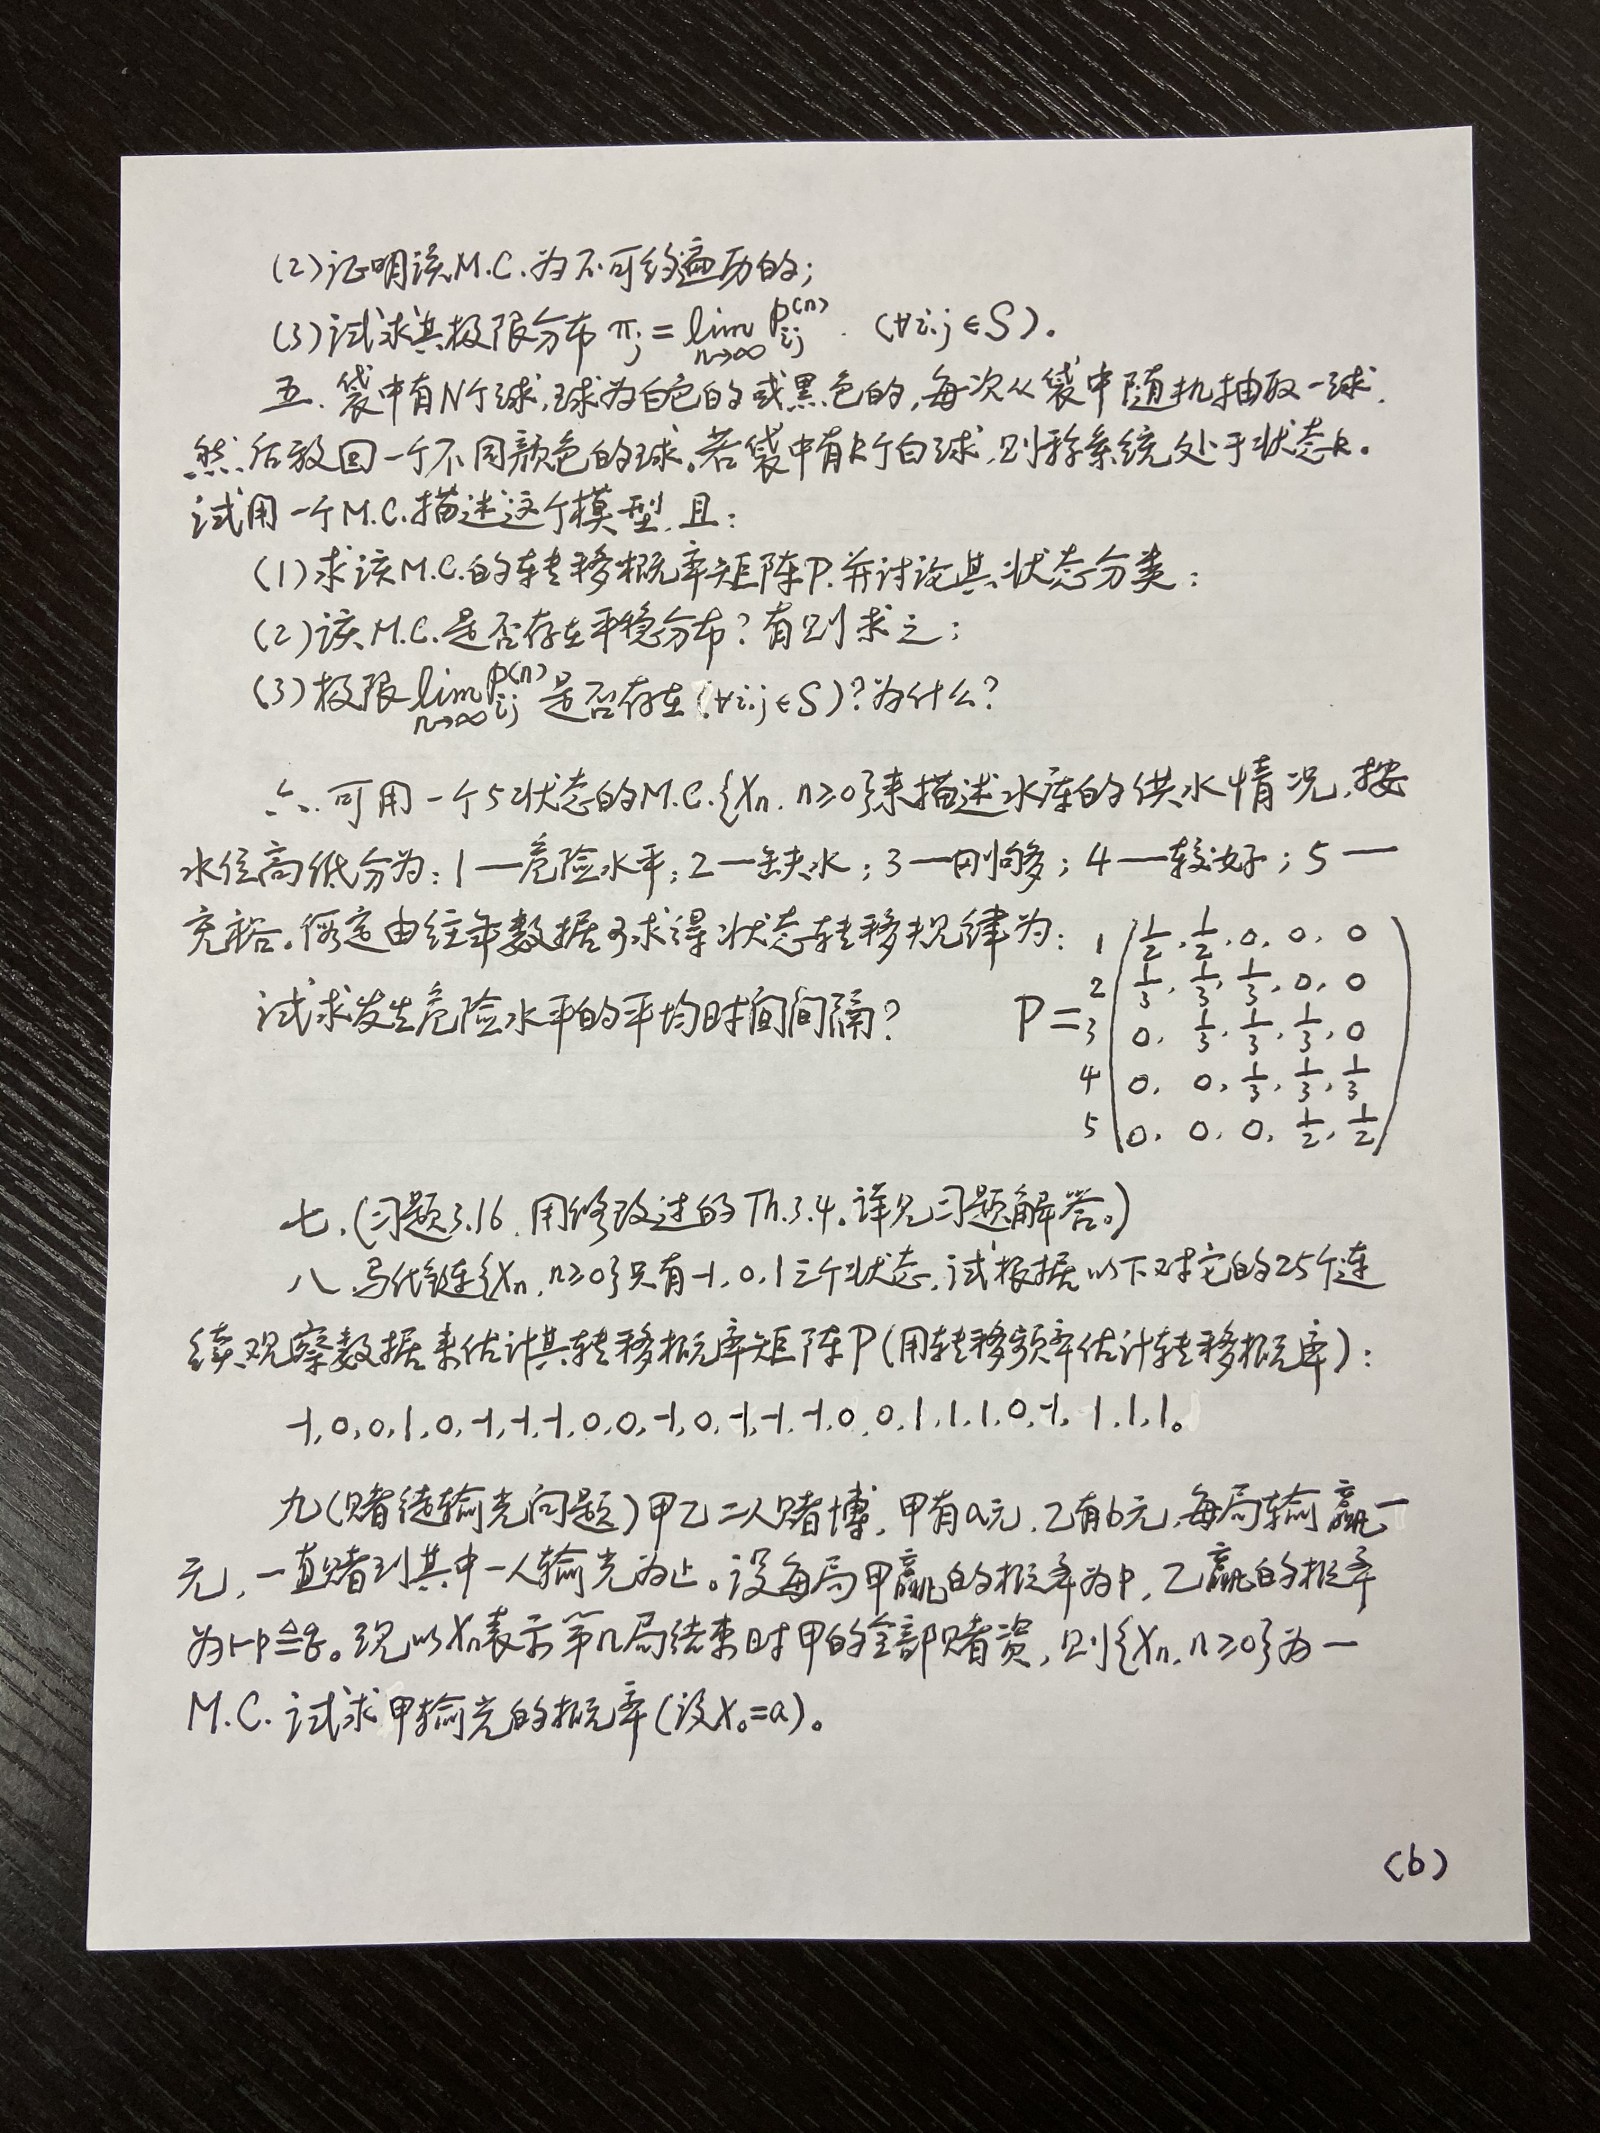 (2)证明该M.C.为不可约遍历的;
(3)试求其极限分布 πj = lim n→∞ Pij(n). (∀i,j∈S)。
五、袋中有N个球,球为白色的或黑色的,每次从袋中随机抽取一球,
然后放回一个不同颜色的球。若袋中有k个白球,则称系统处于状态k。
试用一个M.C.描述这个模型,且:
(1)求该M.C.的转移概率矩阵P,并讨论其状态分类;
(2)该M.C.是否存在平稳分布?有则求之;
(3)极限 lim n→∞ Pij(n) 是否存在(∀i,j∈S)?为什么?
六、可用一个5状态的M.C.{Xn, n≥0}来描述水库的供水情况,按
水位高低分为:1—危险水平;2—缺水;3—刚够;4—较好;5—
充裕。假定由往年数据可求得状态转移规律为:
试求发生危险水平的平均时间间隔?
P=
1 1/2, 1/2, 0, 0, 0
2 1/3, 1/3, 1/3, 0, 0
3 0, 1/3, 1/3, 1/3, 0
4 0, 0, 1/3, 1/3, 1/3
5 0, 0, 0, 1/2, 1/2
七、(习题3.16,用修改过的Th.3.4。详见习题解答。)
八、马氏链{Xn, n≥0}只有-1,0,1三个状态,试根据以下对它的25个连
续观察数据来估计其转移概率矩阵P(用转移频率估计转移概率):
-1,0,0,1,0,-1,-1,-1,0,0,-1,0,-1,-1,-1,0,0,1,1,1,0,-1,1,1,1。
九(赌徒输光问题)甲乙二人赌博,甲有a元,乙有b元,每局输赢一
元,一直赌到其中一人输光为止。设每局甲赢的概率为p,乙赢的概率
为1-p≜q。现以Xn表示第n局结束时甲的全部赌资,则{Xn, n≥0}为一
M.C. 试求甲输光的概率(设X0=a)。
(b)